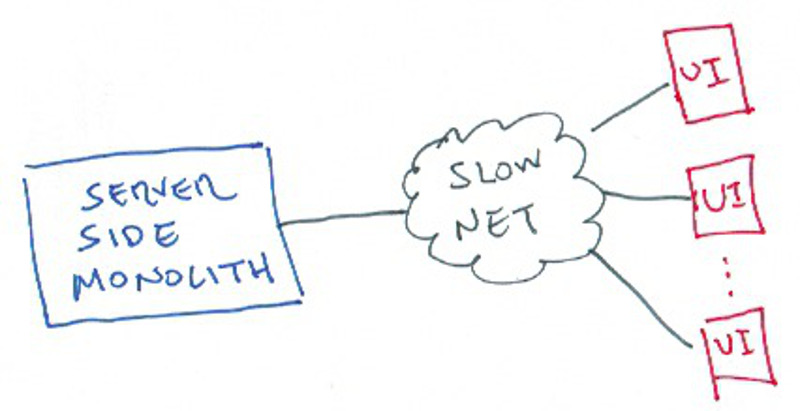 SERVER
SIDE
MONOLITH
SLOW
NET
UI
UI
UI